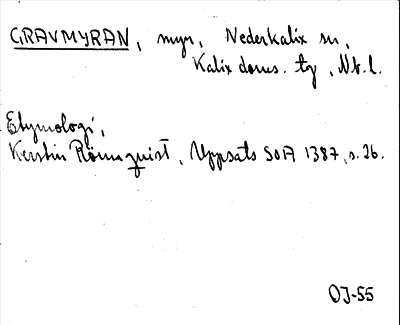 GRAVMYRAN, myr, Nederkalix sn,
Kalix doms. tg, Nb.l.
Etymologi,
Kerstin Rönnquist, Uppsats SOA 1387, s. 26.
OJ-55